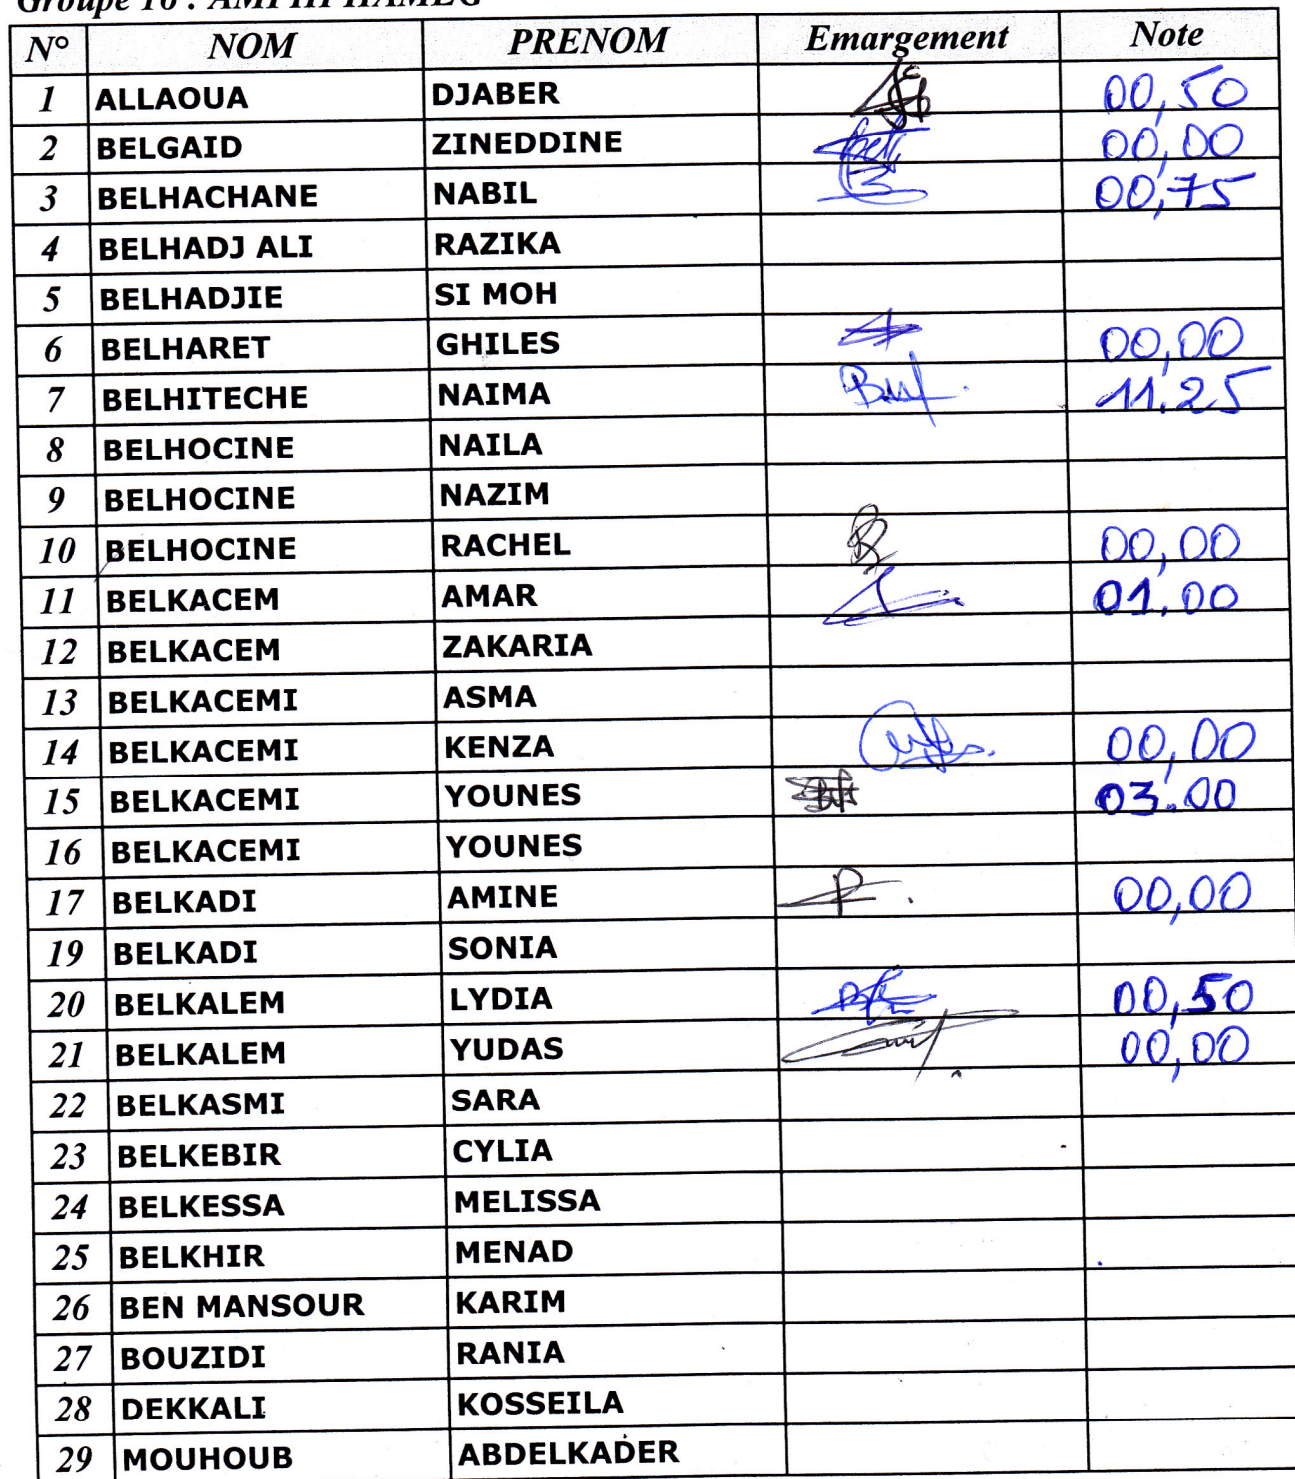 Groupe 16 : AMPHI HAMEG
N° NOM PRENOM Emargement Note
1 ALLAOUA DJABER 00,50
2 BELGAID ZINEDDINE 00,00
3 BELHACHANE NABIL 00,75
4 BELHADJ ALI RAZIKA
5 BELHADJIE SI MOH
6 BELHARET GHILES 00,00
7 BELHITECHE NAIMA 11.25
8 BELHOCINE NAILA
9 BELHOCINE NAZIM
10 BELHOCINE RACHEL 00,00
11 BELKACEM AMAR 01.00
12 BELKACEM ZAKARIA
13 BELKACEMI ASMA
14 BELKACEMI KENZA 00,00
15 BELKACEMI YOUNES 03.00
16 BELKACEMI YOUNES
17 BELKADI AMINE 00,00
19 BELKADI SONIA
20 BELKALEM LYDIA 00,50
21 BELKALEM YUDAS 00,00
22 BELKASMI SARA
23 BELKEBIR CYLIA
24 BELKESSA MELISSA
25 BELKHIR MENAD
26 BEN MANSOUR KARIM
27 BOUZIDI RANIA
28 DEKKALI KOSSEILA
29 MOUHOUB ABDELKADER